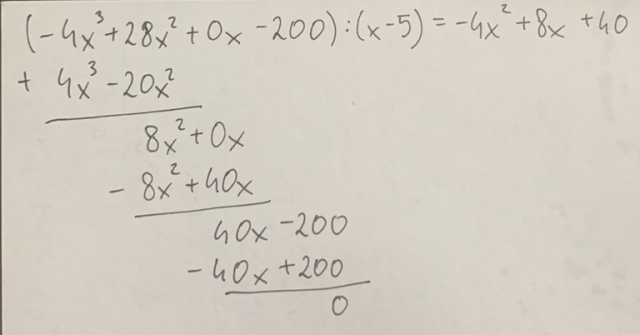 (-4x³+28x²+0x-200):(x-5)=-4x²+8x+40
+ 4x³-20x²
8x²+0x
-8x²+40x
40x-200
-40x+200
0